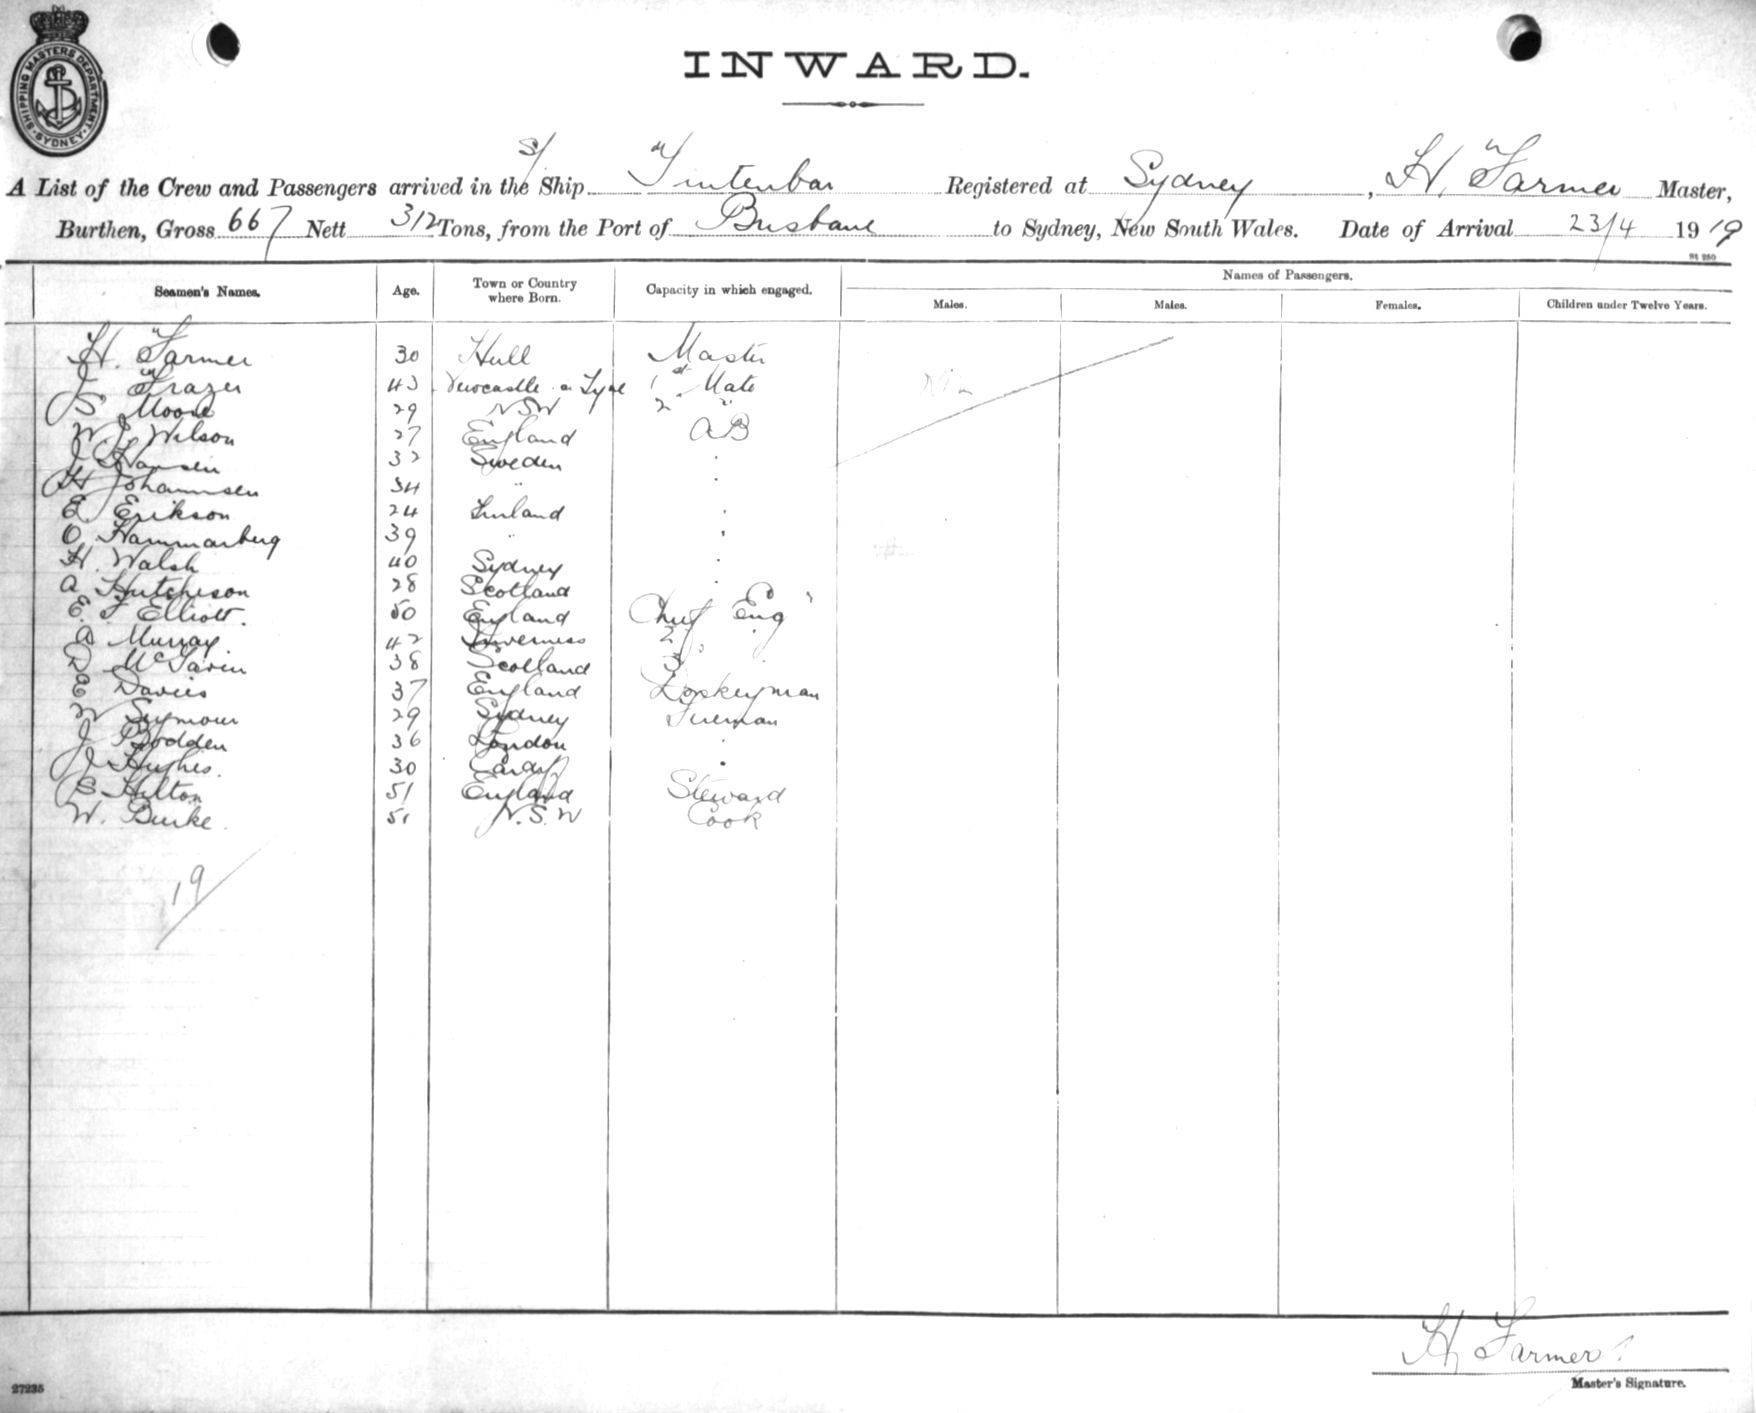 SHIPPING MASTERS DEPARTMENT SYDNEY
INWARD.
A List of the Crew and Passengers arrived in the S/ Ship Tintenbar Registered at Sydney, H. Farmer Master,
Burthen, Gross 667 Nett 312 Tons, from the Port of Brisbane to Sydney, New South Wales. Date of Arrival 23/4 1919
Seamen's Names. Age. Town or Country where Born. Capacity in which engaged. Names of Passengers.
Males. Males. Females. Children under Twelve Years.
H. Farmer 30 Hull Master
J Frazer 43 Newcastle on Tyne 1st Mate
S Moore 29 NSW 2 "
W. J. Wilson 27 England AB
J Hansen 32 Sweden "
H Johannsen 34 " "
E. Erikson 24 Finland "
O. Hammarberg 39 " "
H. Walsh 40 Sydney "
A Hutcheson 28 Scotland "
E. F Elliott. 50 England Chief Eng
A Murray 42 Inverness 2 "
D 38 Scotland 3 "
E Davies 37 England Donkeyman
W Seymour 29 Sydney Fireman
J Bodden 36 London "
J Hughes. 30 Cardiff "
S Hilton 51 England Steward
W. Burke. 51 N.S.W Cook
19
H Farmer
Master's Signature.
27235